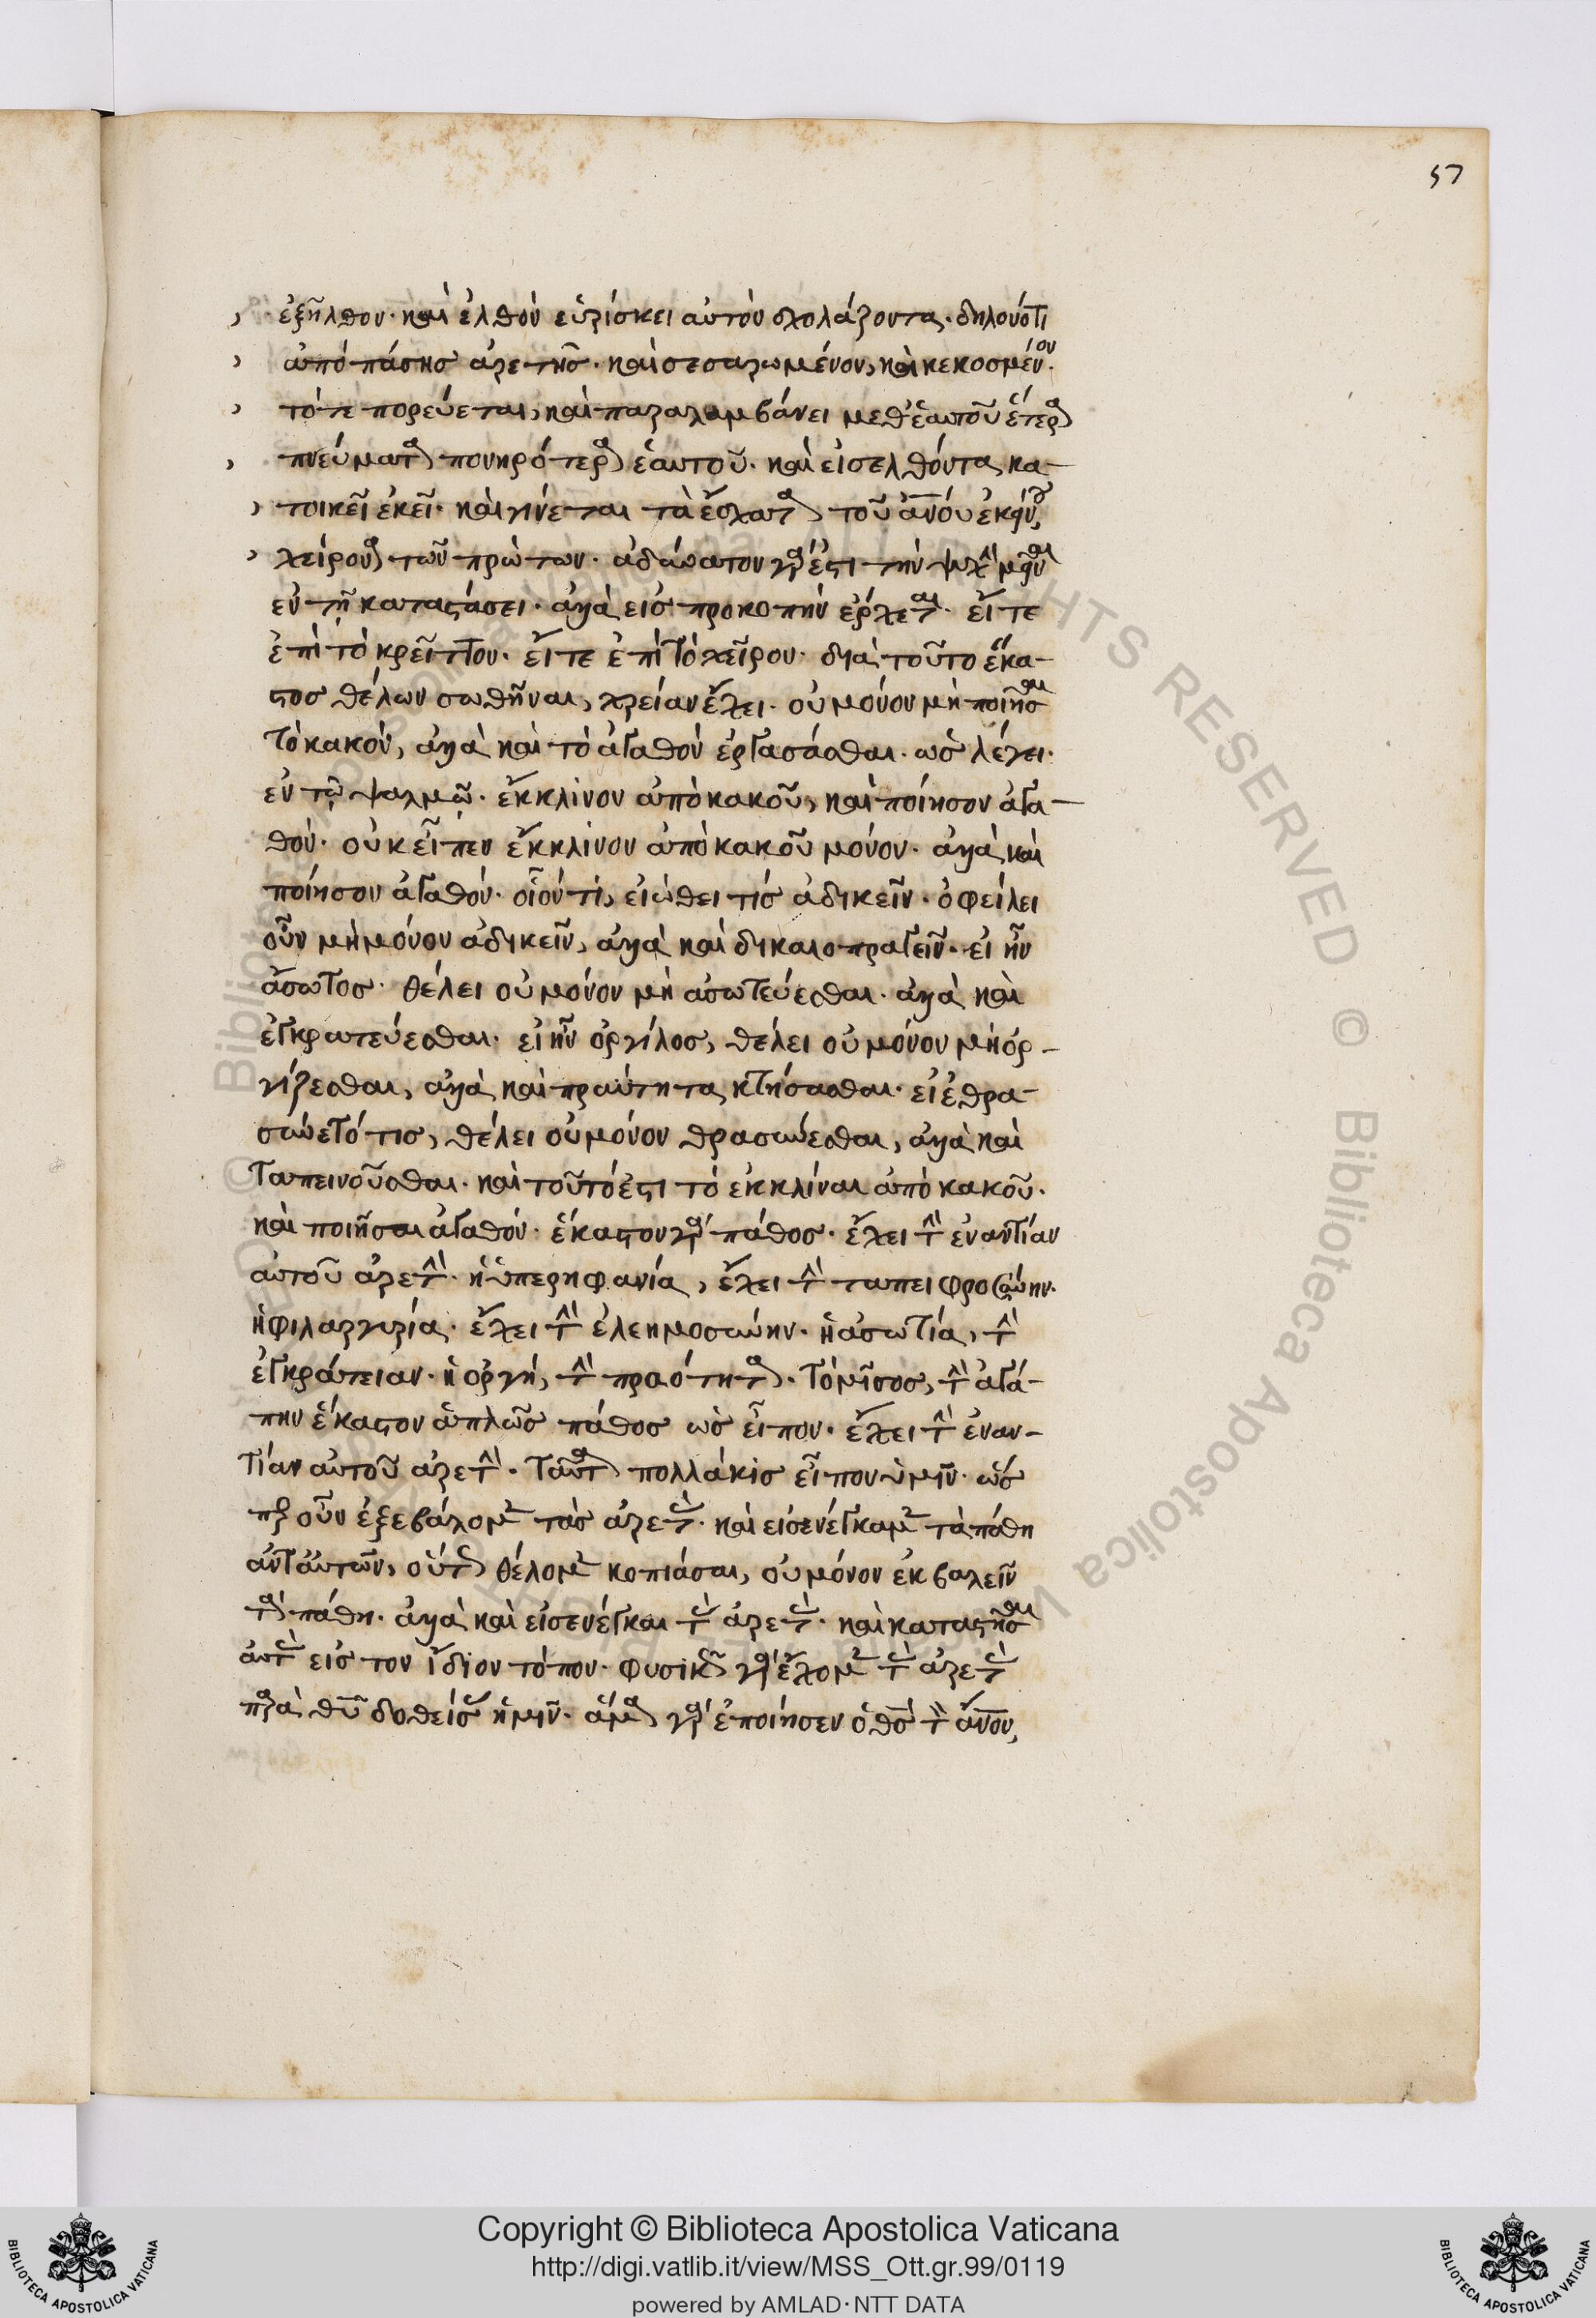 57
ἐξῆλθον· καὶ ἐλθὸν εὑρίσκει αὐτὸν σχολάζοντα· δηλονότι
ἀπὸ πάσης ἀρετῆς· καὶ σεσαρωμένον, καὶ κεκοσμένον·
τότε πορεύεται, καὶ παραλαμβάνει μεθ' ἑαυτοῦ ἕτερα
πνεύματα πονηρότερα ἑαυτοῦ· καὶ εἰσελθόντα κα-
τοικεῖ ἐκεῖ· καὶ γίνεται τὰ ἔσχατα τοῦ ἀνου ἐκείνου,
χείρονα τῶν πρώτων· ἀδύνατον γάρ ἐστι τὴν ψυχὴν μεῖναι
ἐν τῇ καταστάσει· ἀλλὰ εἰς προκοπὴν ἔρχεται· εἴτε
ἐπὶ τὸ κρεῖττον· εἴτε ἐπὶ τὸ χεῖρον· διὰ τοῦτο ἕκα-
στος θέλων σωθῆναι, χρείαν ἔχει· οὐ μόνον μὴ ποιῆσαι
τὸ κακόν, ἀλλὰ καὶ τὸ ἀγαθὸν ἐργάσασθαι· ὡς λέγει·
ἐν τῷ ψαλμῷ· ἔκκλινον ἀπὸ κακοῦ, καὶ ποίησον ἀγα-
θόν· οὐκ εἶπεν ἔκκλινον ἀπὸ κακοῦ μόνον· ἀλλὰ καὶ
ποίησον ἀγαθόν· οἷόν τι, εἰώθει τίς ἀδικεῖν· ὀφείλει
οὖν μὴ μόνον ἀδικεῖν, ἀλλὰ καὶ δικαιοπραγεῖν· εἰ ἦν
ἄσωτος· θέλει οὐ μόνον μὴ ἀσωτεύεσθαι· ἀλλὰ καὶ
ἐγκρατεύεσθαι· εἰ ἦν ὀργίλος, θέλει οὐ μόνον μὴ ὀρ-
γίζεσθαι, ἀλλὰ καὶ πραύτητα κτήσασθαι· εἰ ἐθρα-
σύνετό τις, θέλει οὐ μόνον θρασύνεσθαι, ἀλλὰ καὶ
ταπεινοῦσθαι· καὶ τοῦτό ἐστι τὸ ἐκκλίναι ἀπὸ κακοῦ·
καὶ ποιῆσαι ἀγαθόν· ἕκαστον γὰρ πάθος· ἔχει τὴν ἐναντίαν
αὐτοῦ ἀρετήν· ἡ ὑπερηφανία, ἔχει τὴν ταπειφροσύνην·
ἡ φιλαργυρία· ἔχει τὴν ἐλεημοσύνην· ἡ ἀσωτία, τὴν
ἐγκράτειαν· ἡ ὀργή, τὴν πραότητα· τὸ μῖσος, τὴν ἀγά-
πην ἕκαστον ἁπλῶς πάθος ὡς εἶπον· ἔχει τὴν ἐναν-
τίαν αὐτοῦ ἀρετήν· ταῦτα πολλάκις εἶπον ὑμῖν· ὥς
περ οὖν ἐξεβάλομεν τὰς ἀρετάς· καὶ εἰσενέγκαμεν τὰ πάθη
ἀντ' αὐτῶν, οὕτως θέλομεν κοπιάσαι, οὐ μόνον ἐκβαλεῖν
τὰ πάθη· ἀλλὰ καὶ εἰσενέγκαι τὰς ἀρετάς· καὶ καταστῆσαι
αὐτὰς εἰς τὸν ἴδιον τόπον· φυσικῶς γὰρ ἔχομεν τὰς ἀρετὰς
παρὰ θυ δοθείσας ἡμῖν· ἅμα γὰρ ἐποίησεν ὁ θς τὸν ἄνον,
Copyright © Biblioteca Apostolica Vaticana
http://digi.vatlib.it/view/MSS_Ott.gr.99/0119
powered by AMLAD·NTT DATA